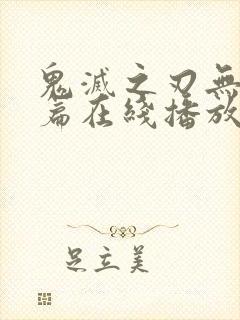 鬼滅之刃無
篇在綫播放
足立美